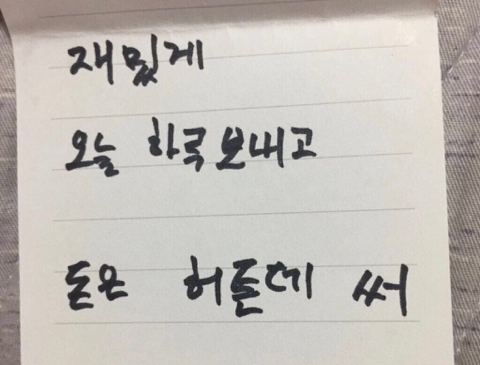 재밌게
오늘 하룩 보내고
돈은 허튼데 써